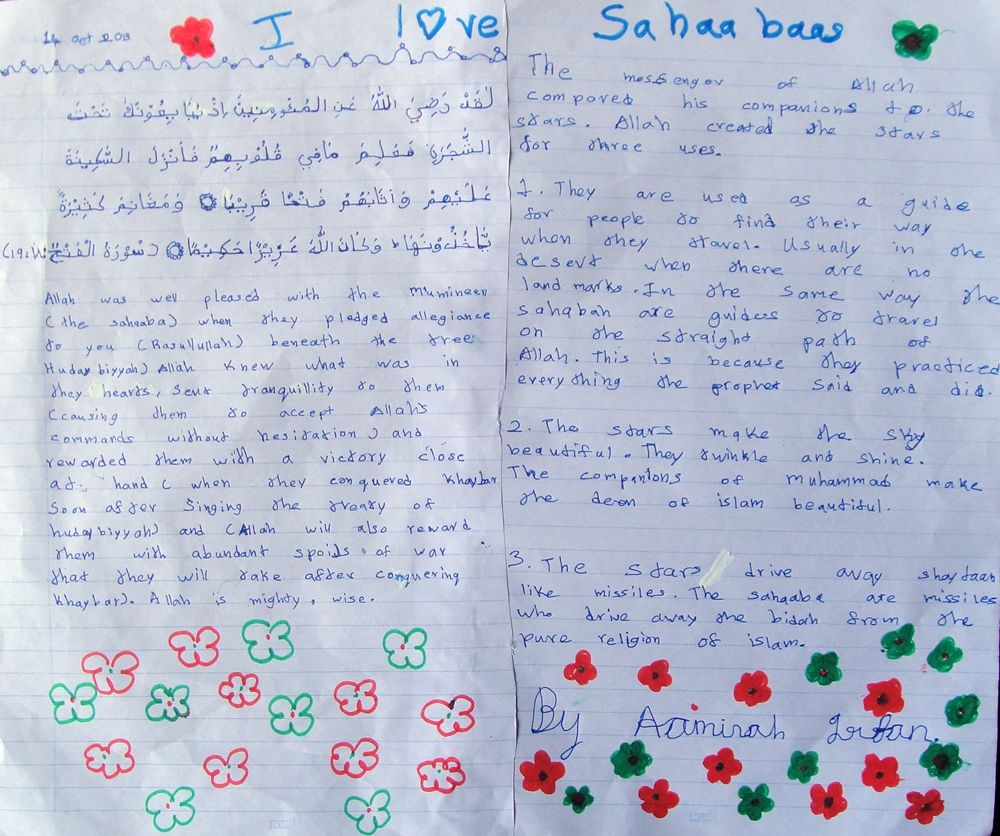 14 Oct 2013
I love Sahaabaas
لَقَدْ رَضِيَ اللهُ عَنِ المُئومِنِينَ اِذْ يُبَايِعُونَكَ تَحْتَ
الشَّجَرَةِ فَعَلِمَ مَافِي قُلُوبِهِمْ فَأَنْزَلَ السَّكِينَةَ
عَلَيْهِمْ وَاَثَابَهُمْ فَتْحًا قَرِيبًا ۝ وَمَغَانِمَ كَثِيْرَةً
يَّأْخُذُونَهَا وَكَانَ اللهُ عَزِيْزًا حَكِيمًا ۝ (سُوْرَةُ الْفَتْحْ
Allah was well pleased with the mumineen
(the sahaaba) when they pledged allegiance
to you (Rasullullah) beneath the tree
Hudaybiyyah) Allah knew what was in
they hearts, sent tranquillity to them
(causing them to accept Allah's
commands without hesitation) and
rewarded them with a victory close
at hand ( when they conquered Khaybar
Soon after Singing the treaty of
hudaybiyyah) and (Allah will also reward
them with abundant spoils of war
that they will take after conquering
khaybar). Allah is mighty, wise.
The messenger of Allah
compared his companions to the
stars. Allah created the stars
for three uses.
1. They are used as a guide
for people to find their way
when they travel. Usually in the
desert when there are no
land marks. In the same way the
sahabah are guides to travel
on the straight path of
Allah. This is because they practiced
every thing the prophet said and did.
2. The stars make the sky
beautiful. They twinkle and shine.
The companions of muhammad make
the deen of islam beautiful.
3. The stars drive away shaytaan
like missiles. The sahaaba are missiles
who drive away the bidah from the
pure religion of islam.
By Aamirah Irfan.